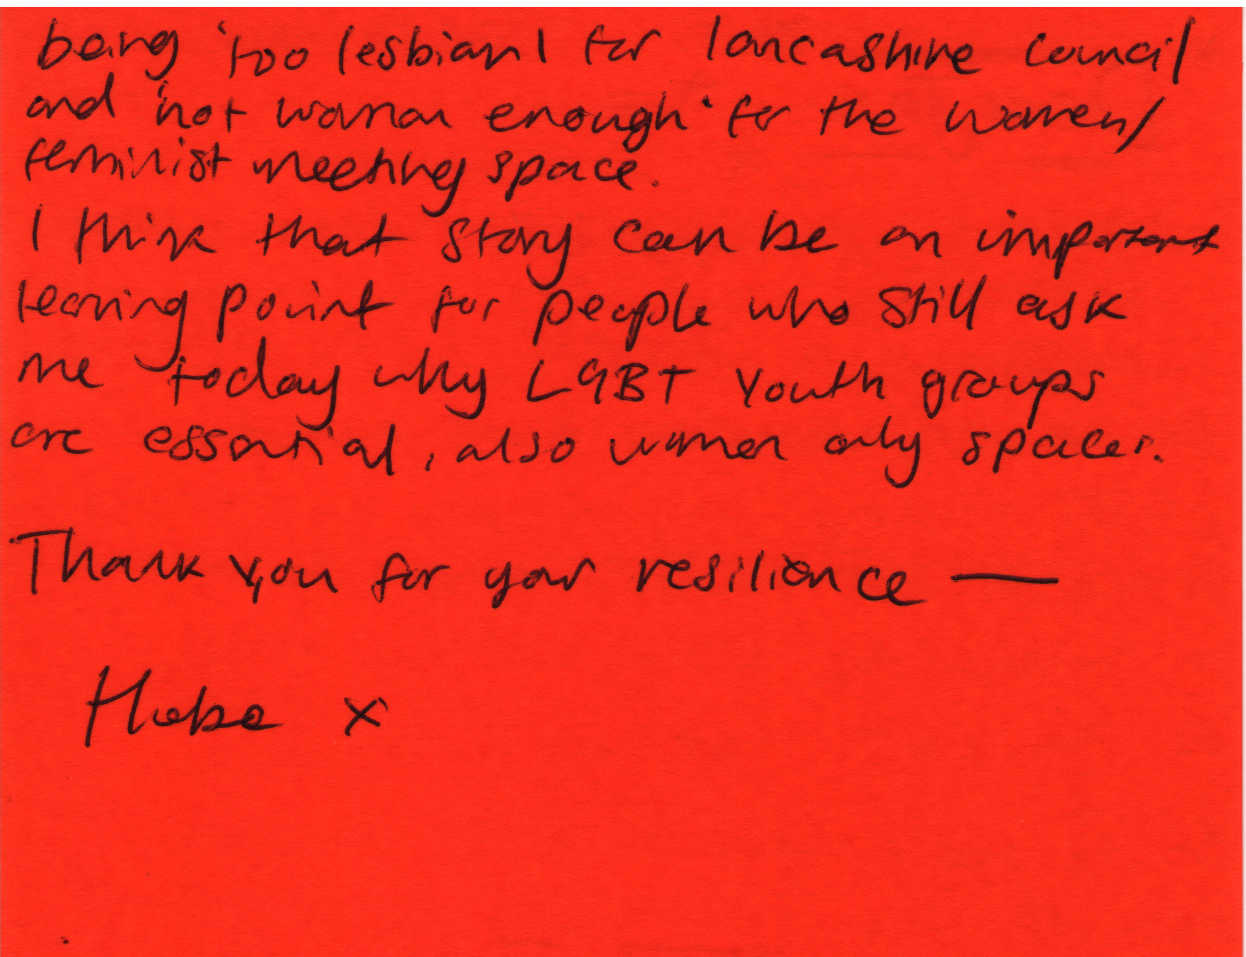 being 'too lesbian' for lancashire council
and 'not woman enough' for the women/
feminist meeting space.
I think that story can be an important
learning point for people who still ask
me today why LGBT Youth groups
are essential, also women only spaces.
Thank you for your resilience —
Hebe x